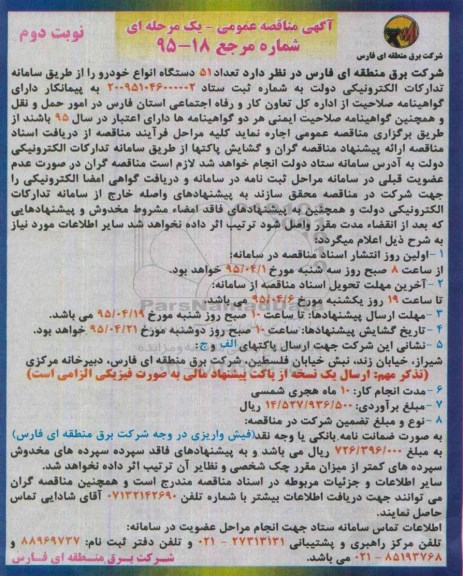 آگهی مناقصه عمومی - یک مرحله ای
شماره مرجع ۱۸-۹۵
نوبت دوم
شرکت برق منطقه ای فارس
شرکت برق منطقه ای فارس در نظر دارد تعداد ۵۱ دستگاه انواع خودرو را از طریق سامانه
تدارکات الکترونیکی دولت به شماره ثبت ستاد ۲۰۰۹۵۱۰۴۶۰۰۰۰۰۲ به پیمانکار دارای
گواهینامه صلاحیت از اداره کل تعاون کار و رفاه اجتماعی استان فارس در امور حمل و نقل
و همچنین گواهینامه صلاحیت ایمنی هر دو گواهینامه ها دارای اعتبار در سال ۹۵ باشند از
طریق برگزاری مناقصه عمومی اجاره نماید کلیه مراحل فرآیند مناقصه از دریافت اسناد
مناقصه ارائه پیشنهاد مناقصه گران و گشایش پاکتها از طریق سامانه تدارکات الکترونیکی
دولت به آدرس سامانه ستاد دولت انجام خواهد شد لازم است مناقصه گران در صورت عدم
عضویت قبلی در سامانه مراحل ثبت نامه در سامانه و دریافت گواهی امضا الکترونیکی را
جهت شرکت در مناقصه محقق سازند به پیشنهادهای واصله خارج از سامانه تدارکات
الکترونیکی دولت و همچنین به پیشنهادهای فاقد امضاء مشروط مخدوش و پیشنهادهایی
که بعد از انقضاء مدت مقرر واصل شود ترتیب اثر داده نخواهد شد سایر اطلاعات مورد نیاز
به شرح ذیل اعلام میگردد:
۱-اولین روز انتشار اسناد مناقصه در سامانه:
از ساعت ۸ صبح روز سه شنبه مورخ ۹۵/۰۴/۱ خواهد بود.
۲-آخرین مهلت تحویل اسناد مناقصه از سامانه:
تا ساعت ۱۹ روز یکشنبه مورخ ۹۵/۰۴/۶ می باشد.
۳-مهلت ارسال پیشنهادها: تا ساعت ۱۰ صبح روز شنبه مورخ ۹۵/۰۴/۱۹ می باشد.
۴-تاریخ گشایش پیشنهادها: ساعت ۱۰ صبح روز دوشنبه مورخ ۹۵/۰۴/۲۱ خواهد بود.
۵-نشانی این شرکت جهت ارسال پاکتهای الف و ج:
شیراز، خیابان زند، نبش خیابان فلسطین، شرکت برق منطقه ای فارس، دبیرخانه مرکزی
(تذکر مهم: ارسال یک نسخه از پاکت پیشنهاد مالی به صورت فیزیکی الزامی است)
۶-مدت انجام کار: ۱۰ ماه هجری شمسی
۷-مبلغ برآوردی: ۱۴/۵۲۷/۹۳۶/۵۰۰ ریال
۸-نوع و مبلغ تضمین شرکت در مناقصه:
به صورت ضمانت نامه بانکی یا وجه نقد(فیش واریزی در وجه شرکت برق منطقه ای فارس)
به مبلغ ۷۲۶/۳۹۶/۰۰۰ ریال می باشد و به پیشنهادهای فاقد سپرده سپرده های مخدوش
سپرده های کمتر از میزان مقرر چک شخصی و نظایر آن ترتیب اثر داده نخواهد شد.
سایر اطلاعات و جزئیات مربوطه در اسناد مناقصه مندرج است و همچنین مناقصه گران
می توانند جهت دریافت اطلاعات بیشتر با شماره تلفن ۰۷۱۳۲۱۴۲۶۹۰ آقای شادایی تماس
حاصل نمایند.
اطلاعات تماس سامانه ستاد جهت انجام مراحل عضویت در سامانه:
تلفن مرکز راهبری و پشتیبانی ۲۷۳۱۳۱۳۱ - ۰۲۱ و تلفن دفتر ثبت نام: ۸۸۹۶۹۷۳۷ و
۸۵۱۹۳۷۶۸ - ۰۲۱ می باشد.
شرکت برق منطقه ای فارس